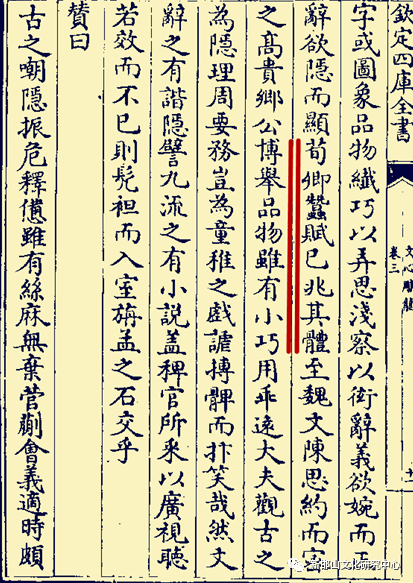 欽定四庫全書
文心雕龍
卷三
字或圖象品物纖巧以弄思淺察以衒辭義欲婉而正
辭欲隱而顯荀卿蠶賦已兆其體至魏文陳思約而密
之高貴鄉公博舉品物雖有小巧用乖遠大夫觀古之
為隱理周要務豈為童稚之戲謔搏髀而抃笑哉然文
辭之有諧隱譬九流之有小說蓋稗官所采以廣視聽
若效而不已則髠袒而入室旃孟之石交乎
贊曰
古之嘲隱振危釋憊雖有絲麻無棄菅蒯會義適時頗
山文化研究中心